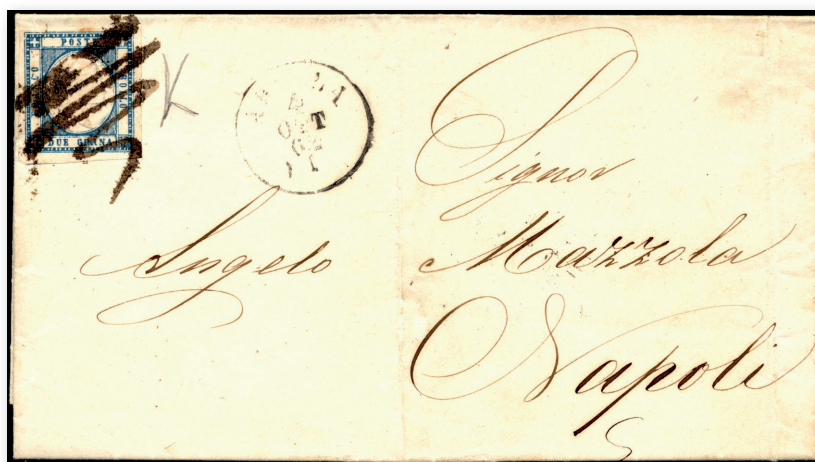 POST
DUE GRANA
K
62
Signor
Angelo Mazzola
Napoli